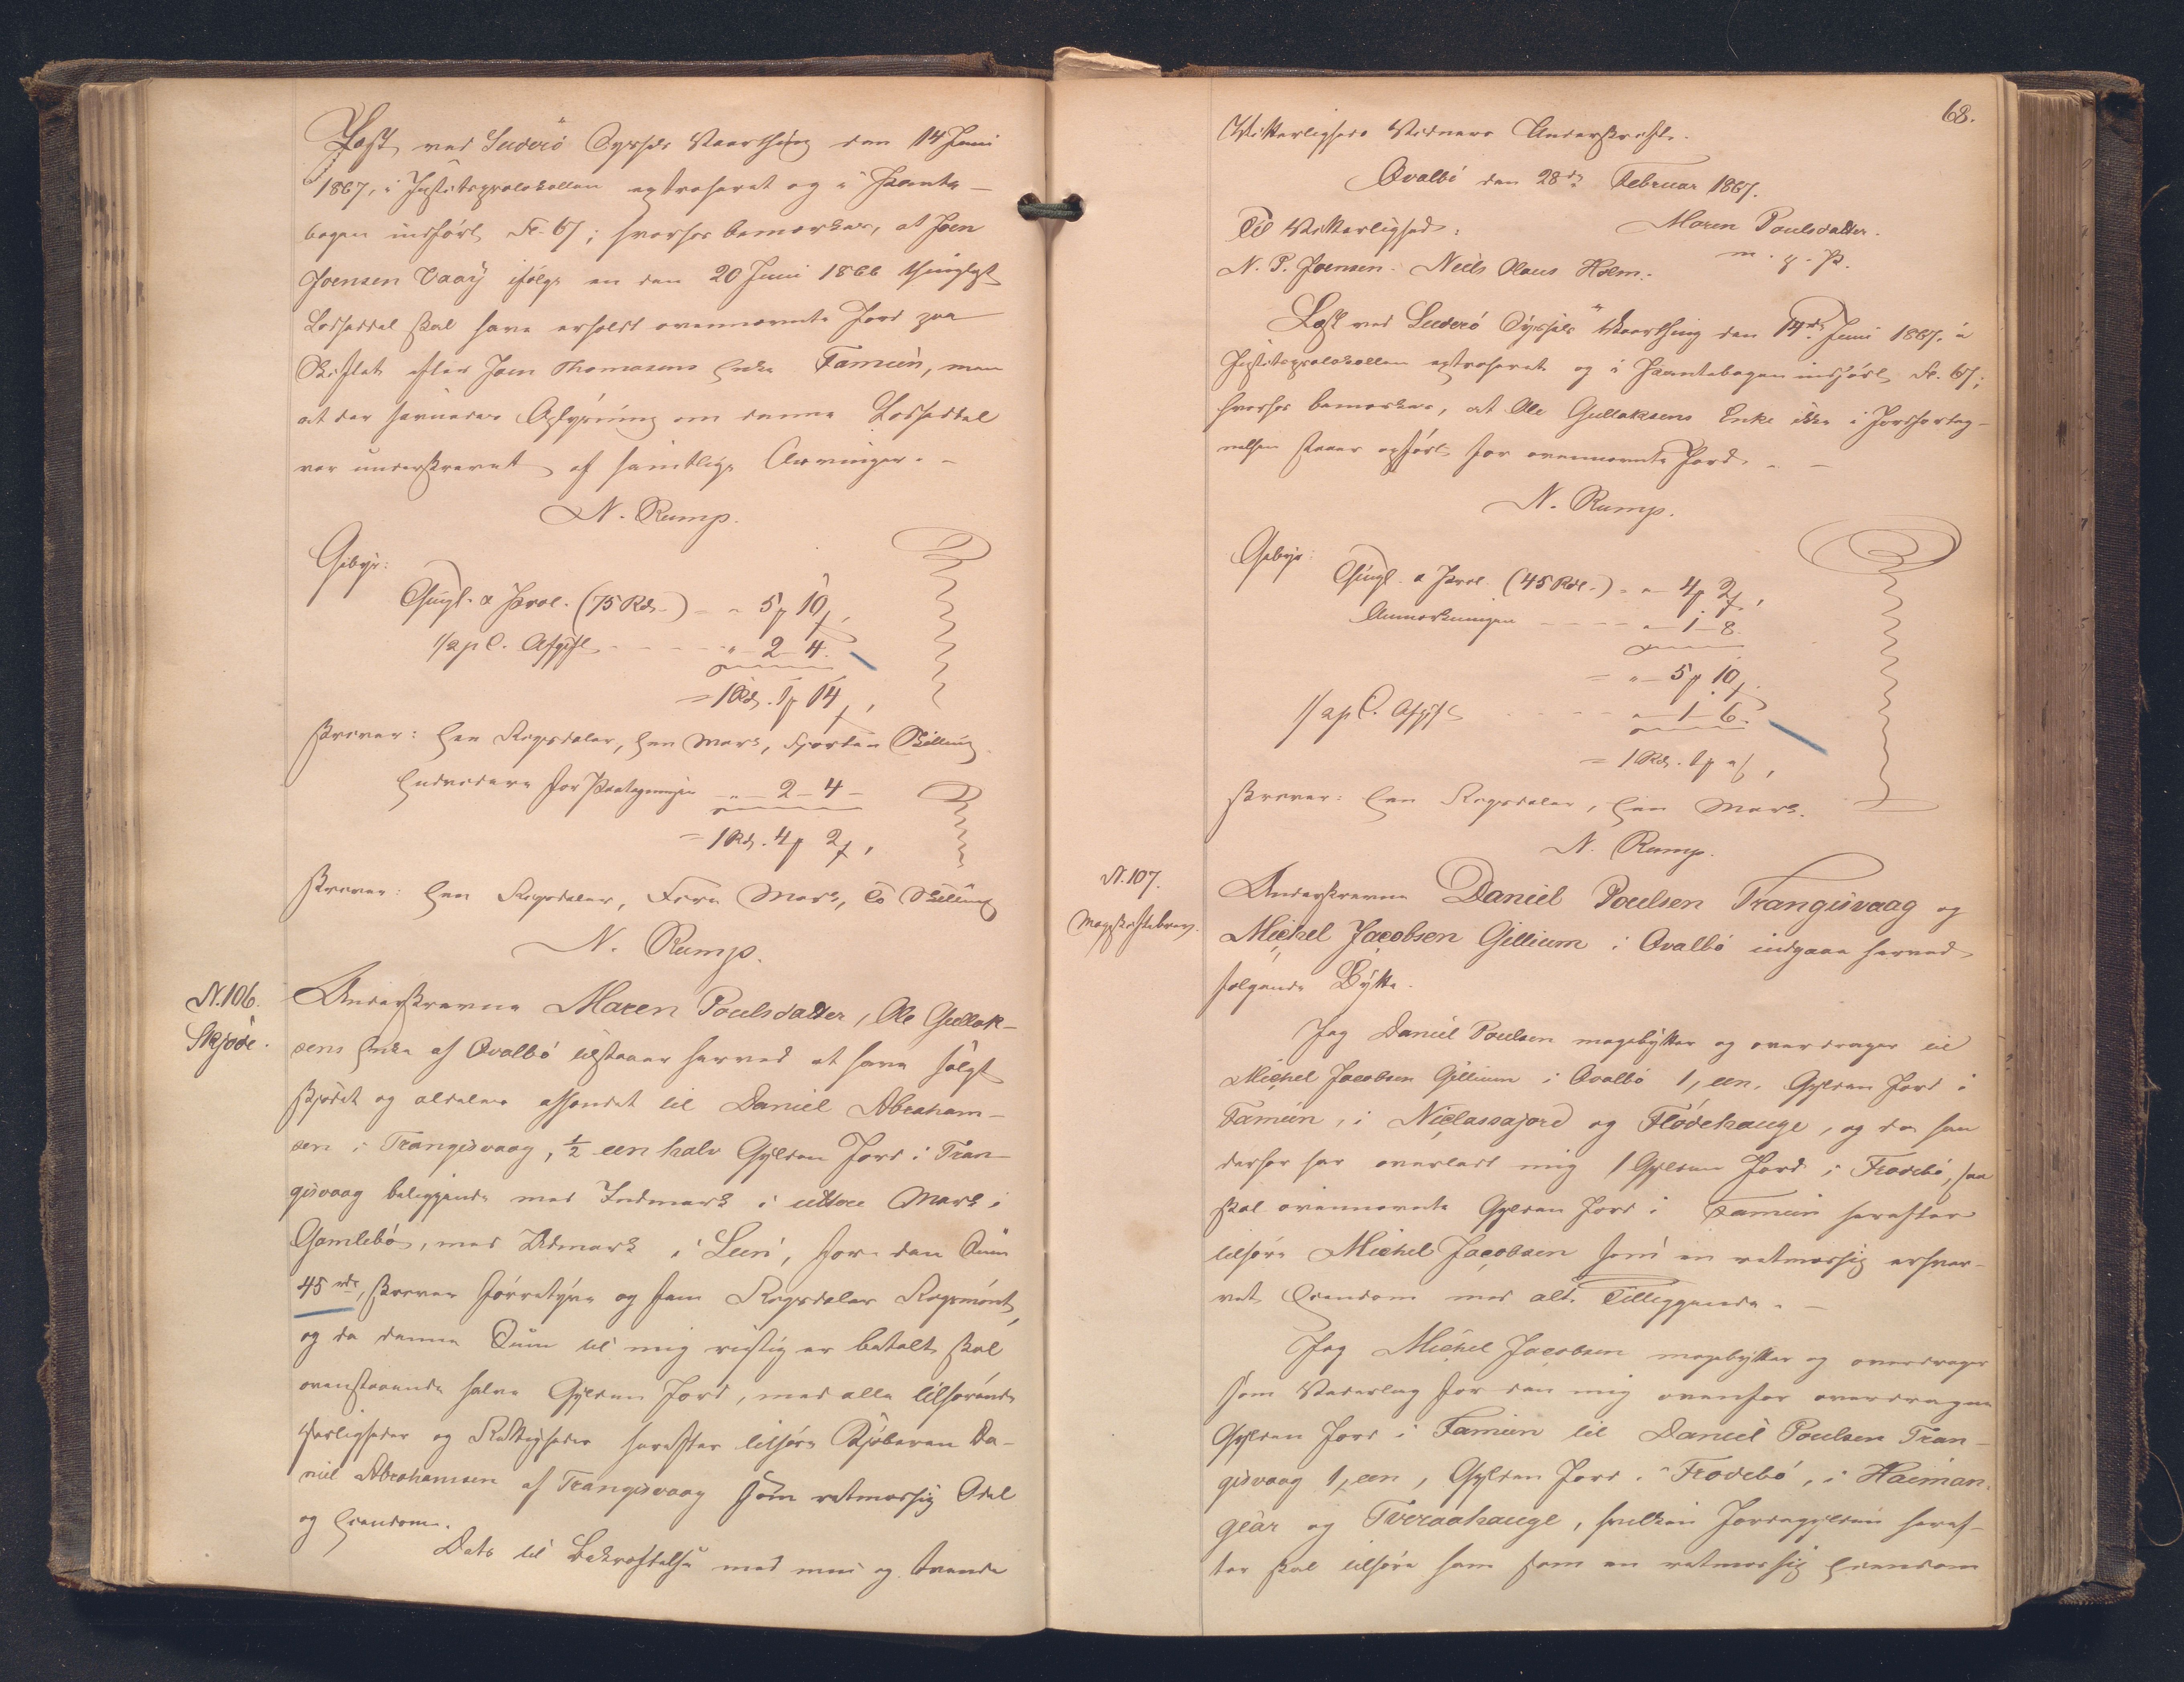 Læst ved Suderö Syssels Vaarthing den 14 Juni
1867, i Justitsprotokollen extraheret og i Pante-
bogen indført Fo. 67; hvorhos bemærkes, at Joen
Joensen Vaag ifølge en den 20 Juni 1866 thinglyst
Lodseddel skal have erholdt ovennævnte Jord paa
Skiftet efter Joen Thomasens Enke Famien, men
at der herunder Aflysning om denne Lodseddel
var underskrevet af samtlige Arvinger. -
N. Rump.
Gebyr:
Thingl. & Prot. (75 Rd.) - " 5 ₥ 10 ß,
1/2 p C. Afgift - - - " - 2 - 4.
= 1 Rd. 1 ₥ 14 ß,
skriver: Een Rigsdaler, Een Mark, Fjorten Skilling
Endvidere for Paategningen - " - 2 - 4 -
= 1 Rd. 4 ₥ 2 ß,
skriver: Een Rigsdaler, Fire Mark, to Skilling
N. Rump.
N. 106.
Skjøde.
Underskrevne Maren Poulsdatter, Ole Gullak-
sens Enke af Qvalbö tilstaaer herved at have solgt
skjødet og aldeles afhændet til Daniel Abraham-
sen i Trangisvaag, 1/2 een halv Gylden Jord i Tran-
gisvaag beliggende med Indmark i uttou Mark i
Gamlebö, med Udmark i Leiri, for den Sum
45 rd, skriver førretyve og fem Rigsdaler Rigsmønt,
og da denne Sum til mig rigtig er betalt skal
ovenstaaende halve Gylden Jord, med alle tilhørende
Herligheder og Rettigheder herefter tilhøre Kjøberen Da-
niel Abrahamsen af Trangisvaag som retmæssig Odel
og Eiendom.
Dets til Bekræftelse med min og tvende
68.
Vitterligheds Vidners Underskrift.
Qvalbö den 28de Februar 1867.
Til Vitterlighed: Maren Poulsdatter.
N. P. Joensen. Niels Olaus Holm. m. f. P.
Læst ved Suderö Syssels Vaarthing den 14de Juni 1867. i
Justitsprotokollen extraheret og i Pantebogen indført Fo. 67;
hvorhos bemærkes, at Ole Gullaksens Enke ikke i Jordforteg-
nelsen staaer opført for ovennævnte Jord. -
N. Rump.
Gebyr:
Thingl. & Prot. (45 Rdl.) - " - 4 ₥ 2 ß,
Anmærkningen - - - " - 1 - 8.
= " - 5 ₥ 10 ß.
1/2 p C. Afgift - - - " - 1 - 6.
= 1 Rd. 1 ₥ " ß,
skriver: Een Rigsdaler, Een Mark.
N. Rump.
N. 107.
Mageskiftebrev.
Underskrevne Daniel Poulsen Trangisvaag og
Michel Jacobsen Gillium i Qvalbö indgaae herved
følgende Bytte.
Jeg Daniel Poulsen magebytter og overdrager til
Michel Jacobsen Gillium i Qvalbö 1, een, Gylden Jord i
Famien, i Niclassajord og Flödehauge, og da han
derfor har overladt mig 1 Gylden Jord i Frodebö, saa
skal ovennævnte Gylden Jord i Famien herefter
tilhøre Michel Jacobsen som en retmæssig erhver-
vet Eiendom med alt Tilliggende. -
Jeg Michel Jacobsen magebytter og overdrager
som Vederlag for den mig ovenfor overdragne
Gylden Jord i Famien til Daniel Poulsen Tran-
gisvaag 1, een, Gylden Jord i Frodebö, i Haiman-
geär og Tveraahauge, hvilken Jordegylden heref-
ter skal tilhøre ham som en retmæssig Eiendom